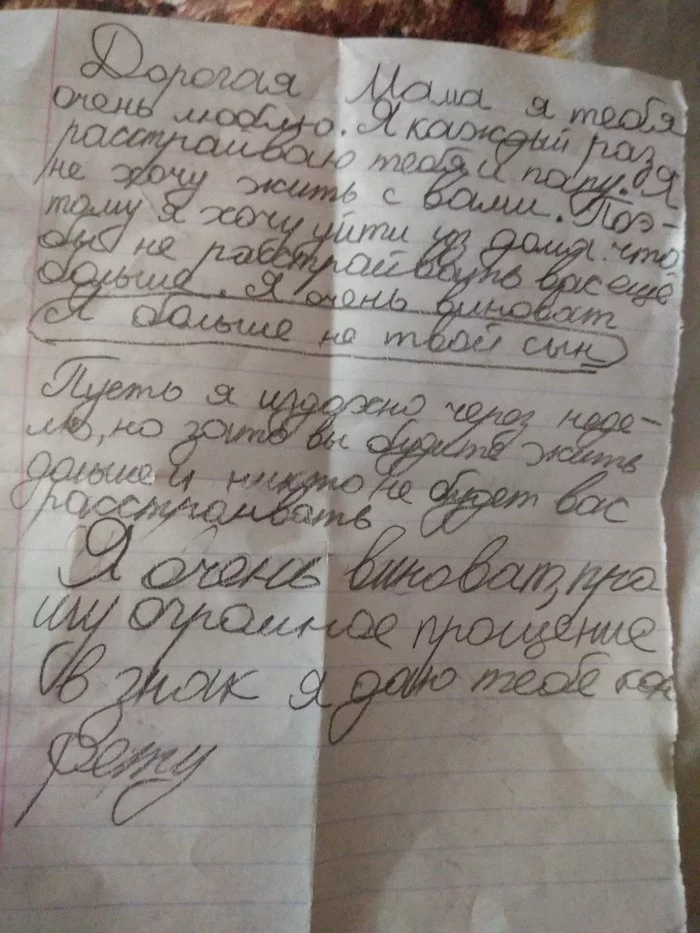 Дорогая Мама я тебя
очень люблю. Я каждый раз
расстраиваю тебя и папу. Я
не хочу жить с вами. Поэ-
тому я хочу уйти из дома что
бы не расстраивать вас ещё
больше. Я очень виноват
Я больше не твой сын
Пусть я издохно через неде-
лю, но зато вы будите жить
дальше и никто не будет вас
расстраивать
Я очень виноват, про
шу огромное прощение
в знак я даю тебе кон
фету